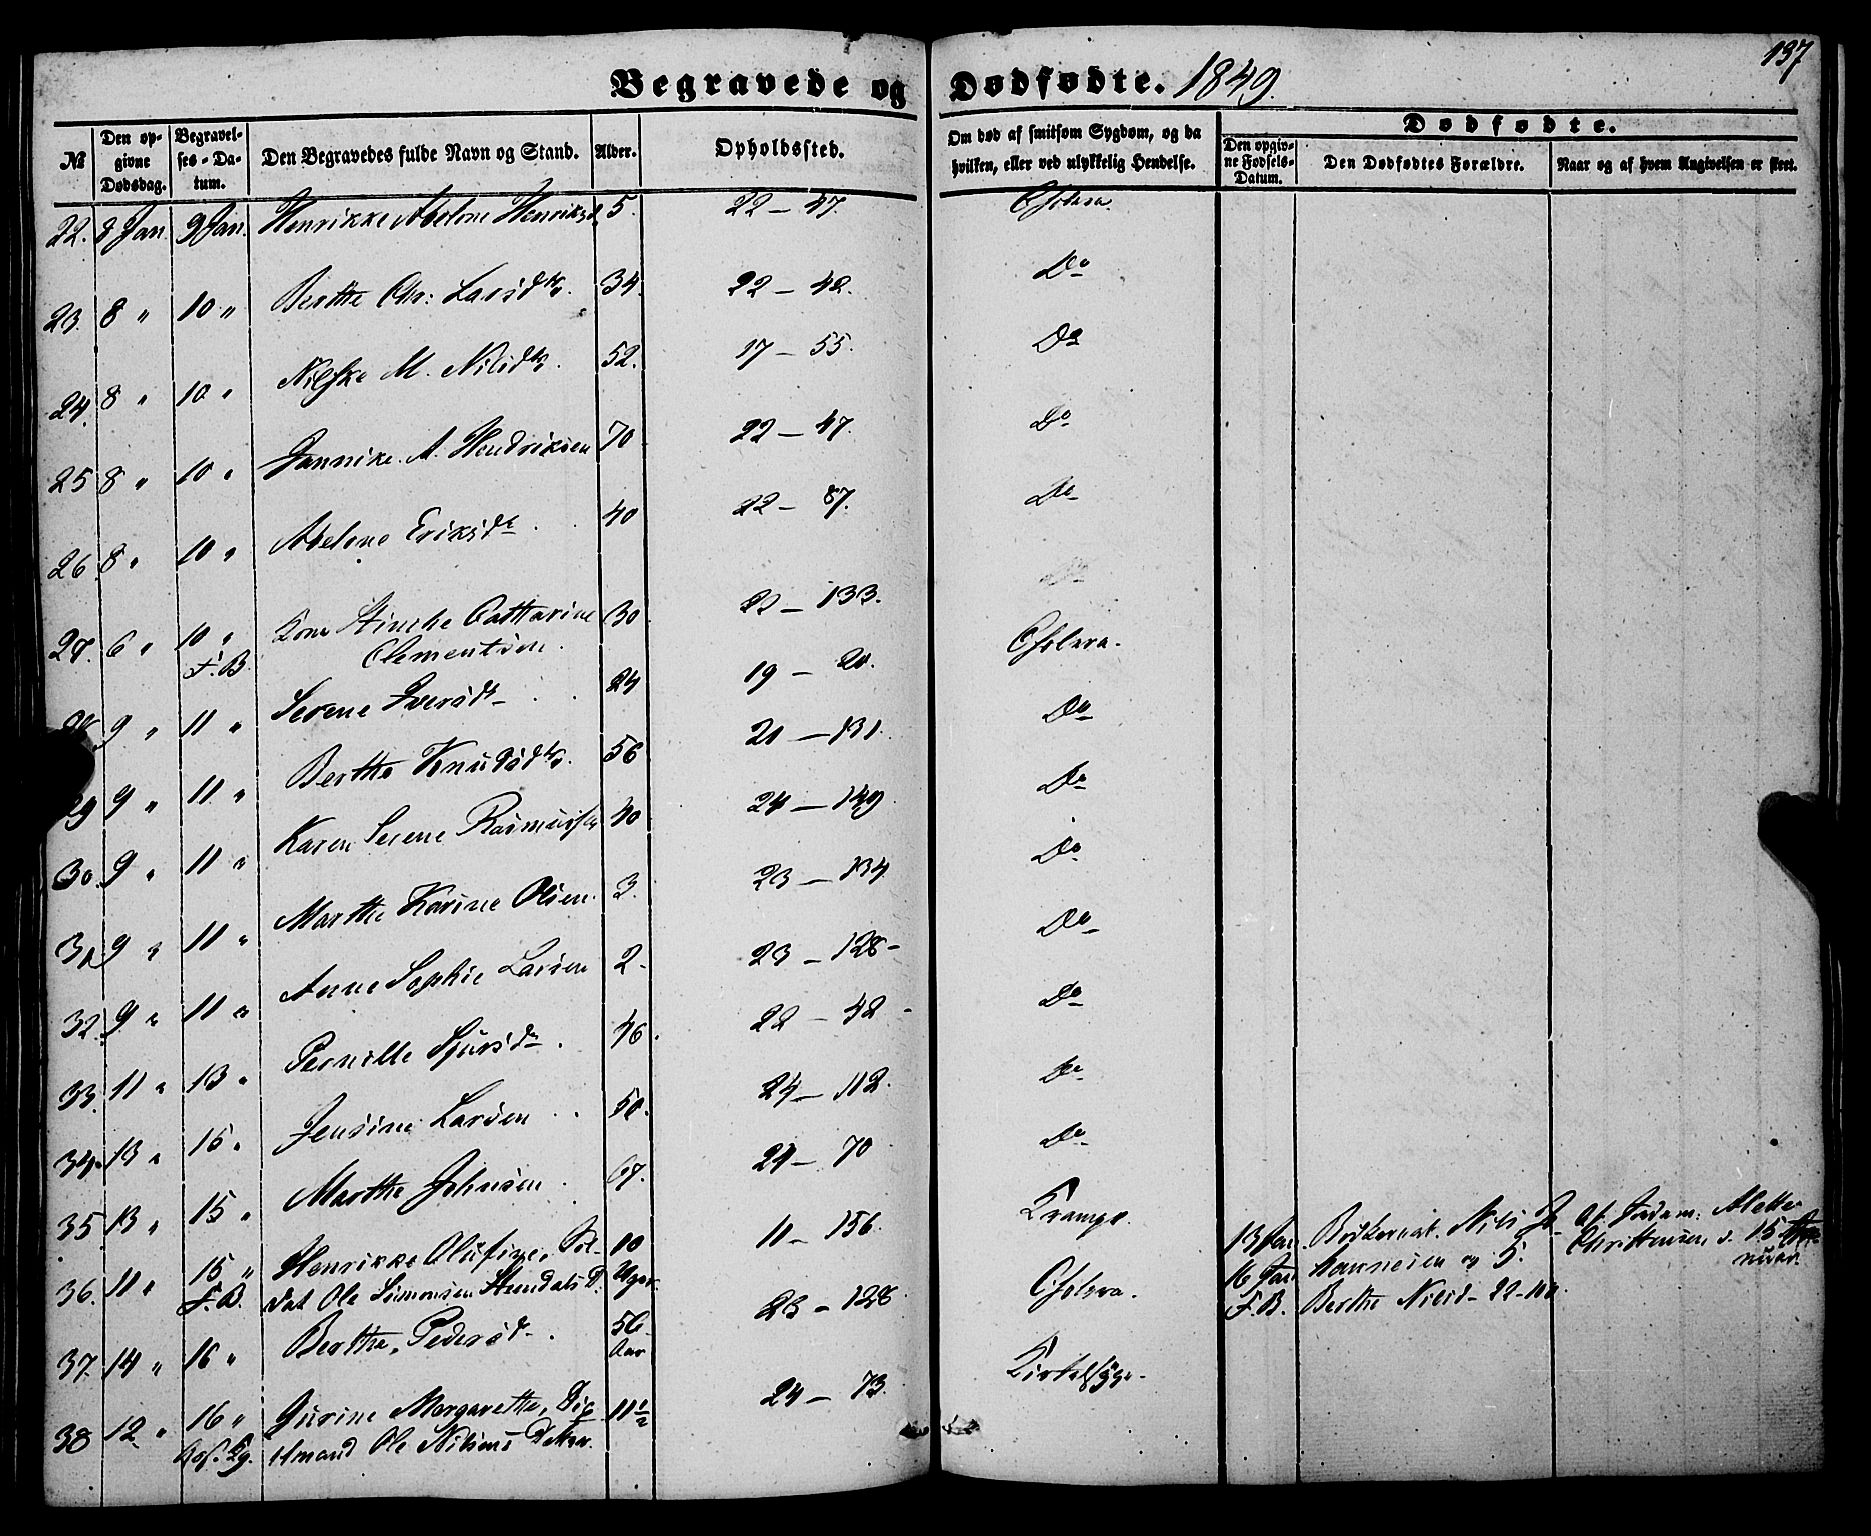 137
Begravede og Dødfødte. 1849.
№ | Den opgivne Dødsdag. | Begravelses-Datum. | Den Begravedes fulde Navn og Stand. | Alder. | Opholdssted. | Om død af smitsom Sygdom, og da hvilken, eller ved ulykkelig Hendelse. | Dødfødte. Den opgivne Fødsels-Datum. | Den Dødfødtes Forældre. | Naar og af hvem Angivelsen er skeet.
22. 8 Jan. 9 Jan. Henrikke Abelone Henriksd. 5. 22 – 47. Cholera.
23. 8 " 10 " Berthe Chr: Larsdtr. 34. 22 – 42. Do
24. 8 " 10 " Nilske M. Nilsdtr. 52. 17 – 55. Do
25 8 " 10 " Jannike A. Hendriksen 70 22 – 47. Do
26 8 " 10 " Abelone Eriksdr 40 22 – 87. Do
27. 6 " 10 " Kone Stinche Catharine 30 23 – 133.
F.B. Clementsen. Cholera.
9 " 11 " Serene Iversdr 24 19 – 20. Do
29 9 " 11 " Berthe Knudsdtr. 56 21 – 131. Do
30. 9 " 11 " Karen Serene Rasmussen 40 24 – 149 Do
31. 9 " 11 " Marthe Karine Olsen. 3. 23 – 134 Do
32. 9 " 11 " Anne Sophie Larsen 2. 23 – 128 – Do
33. 11 " 13 " Pernille Sjursdr. 46. 22 – 42 – Do
34. 13 " 15 " Jensine Larsen 50. 24 – 112. Do
35 13 " 15 " Marthe Johnsen. 67. 24 – 70
36. 11 " 15 " Henrikke Olufine, Sol- 10 11 – 156. Krampe. 13 Jan. Nils Jo- Af Jordem: Alette
F.B. dat Ole Simonsen D. Uger. 16 Jan hannesen og S. Christensen d. 15
37. 14 " 16 " Berthe Pedersd. 56 Aar 23 – 128 Cholera. F.B. Berthe Nilsd – 22 – 100.
38 12 " 16 " Gurine Margarethe, 11½ 24 – 73. Kirtelsyge.
Ole Nilsens Datter.